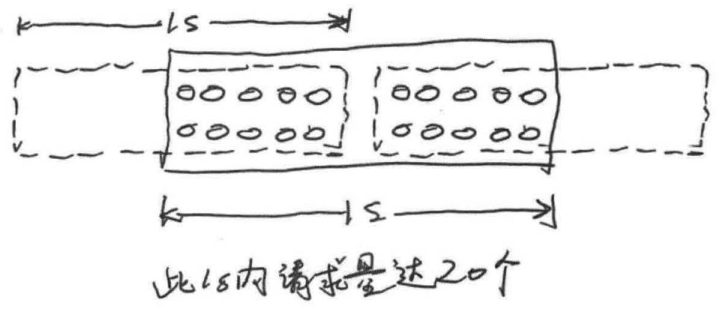 1s
1s
此1s内请求量达20个